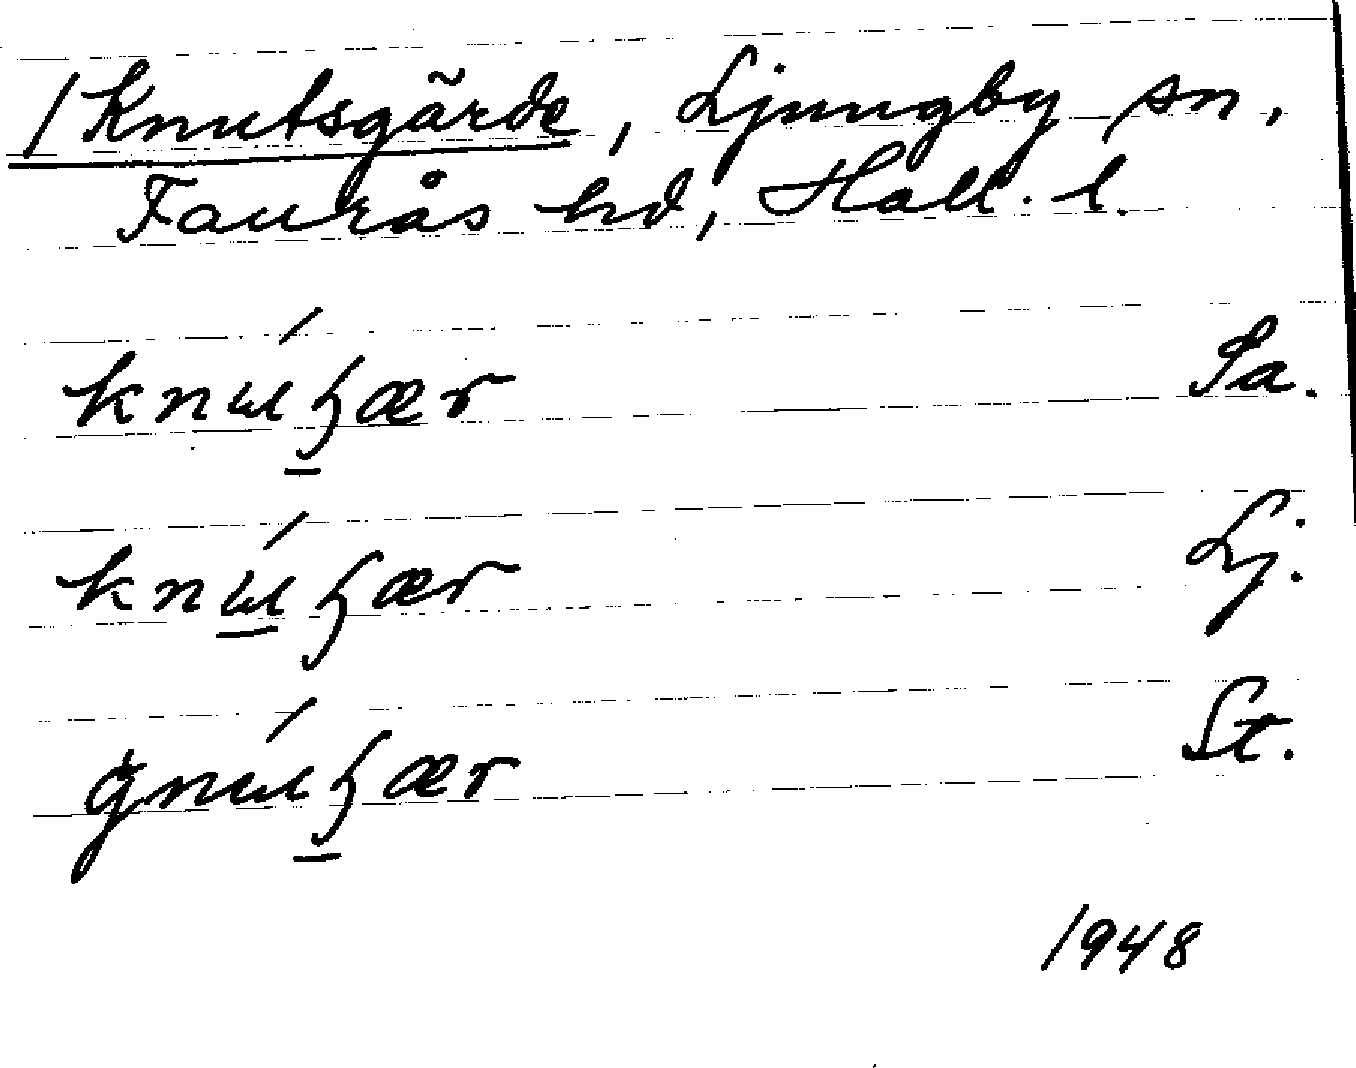 /Knutsgärde, Ljungby sn,
Faurås hd, Hall. l.
knúɧær Sa.
knúɧær Lj.
gnúɧær St.
1948